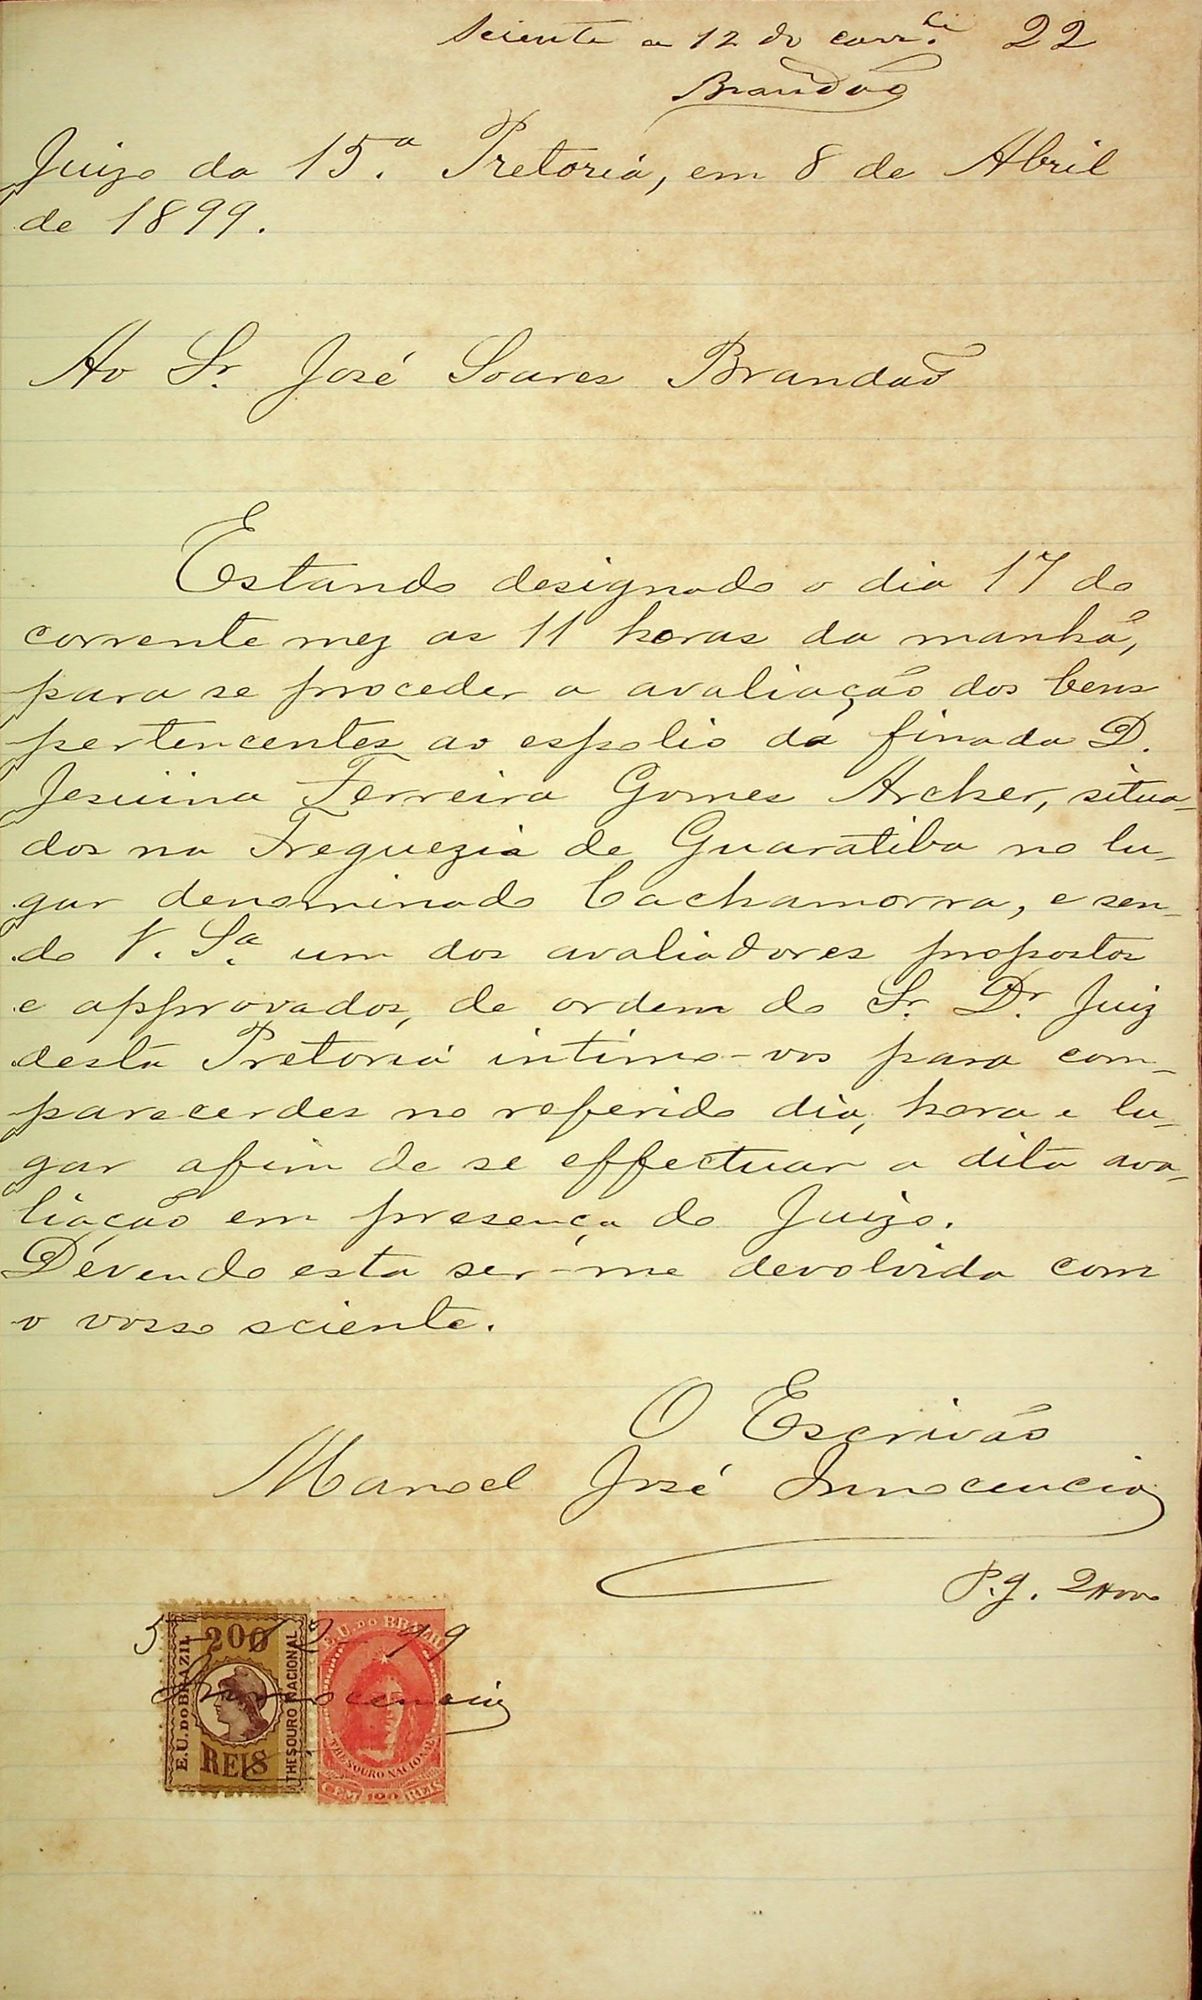 Sciente a 12 do corr.te 22
Brandão
Juizo da 15.a Pretoria, em 8 de Abril
de 1899.
Ao Sr. José Soares Brandão
Estando designado o dia 17 do
corrente mez as 11 horas da manhã,
para se proceder a avaliação dos bens
pertencentes ao espolio da finada D.
Jesuina Ferreira Gomes Archer, situa-
dos na Freguezia de Guaratiba no lu-
gar denominado Cachamorra, e sen-
do V. Sa. um dos avaliadores propostos
e approvados, de ordem do Sr. Dr. Juiz
desta Pretoria intimo-vos para com-
parecerdes no referido dia, hora e lu-
gar afim de se effectuar a dita ava-
liação em presença do Juizo.
Devendo esta ser-me devolvida com
o vosso sciente.
O Escrivão
Manoel José Innocencio
P.g. 2
5 99
Innocencio
E.U. DO BRAZIL
200
REIS
THESOURO NACIONAL
E.U. DO BRAZIL
THESOURO NACIONAL
CEM 100 REIS